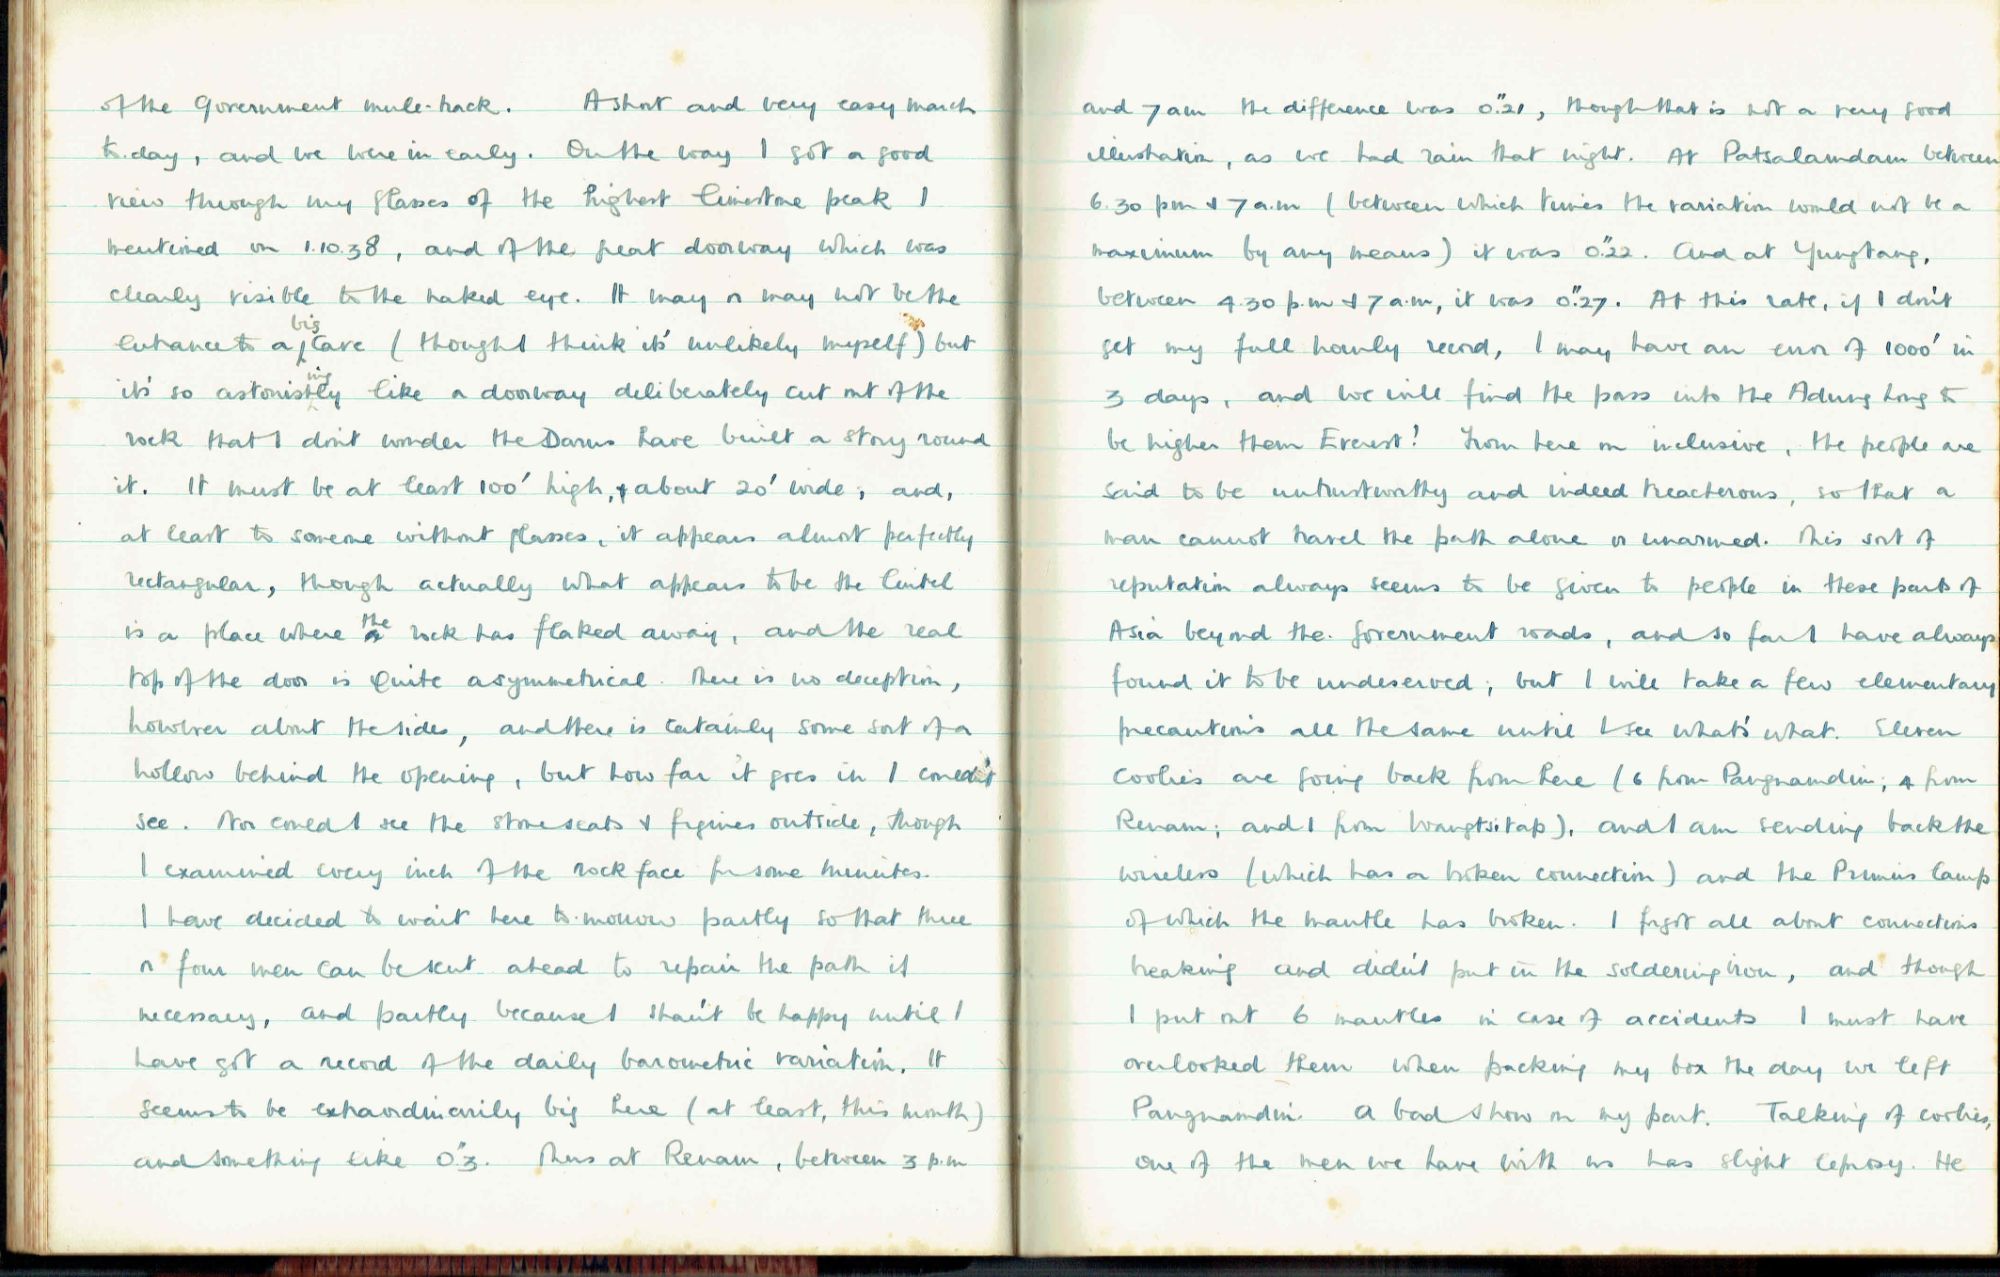 of the Government mule-track. A short and very easy march
to-day, and we were in early. On the way I got a good
view through my glasses of the highest limestone peak I
mentioned on 1.10.38, and of the great doorway which was
clearly visible to the naked eye. It may or may not be the
big
entrance to a cave (though I think it's unlikely myself) but
ing
it's so astonishly like a doorway deliberately cut out of the
rock that I don't wonder the Darus have built a story round
it. It must be at least 100' high, & about 20' wide; and,
at least to someone without glasses, it appears almost perfectly
rectangular, though actually what appears to be the lintel
is a place where the rock has flaked away, and the real
top of the door is quite asymmetrical. There is no deception,
however about the sides, and there is certainly some sort of a
hollow behind the opening, but how far it goes in I couldn't
see. Nor could I see the stone seats & figures outside, though
I examined every inch of the rock face for some minutes.
I have decided to wait here to-morrow partly so that three
or four men can be sent ahead to repair the path if
necessary, and partly because I shan't be happy until I
have got a record of the daily barometric variation. It
seems to be extraordinarily big here (at least, this month)
and something like 0."3. Thus at Renam, between 3 p.m
and 7 am the difference was 0."21, though that is not a very good
illustration, as we had rain that night. At Patsalamdam between
6.30 pm & 7 a.m (between which times the variation would not be a
maximum by any means) it was 0."22. And at Yungtang,
between 4.30 p.m & 7 a.m, it was 0."27. At this rate, if I don't
get my full hourly record, I may have an error of 1000' in
3 days, and we will find the pass into the Adung Long to
be higher them Everest! From here on inclusive, the people are
said to be untrustworthy and indeed treacherous, so that a
man cannot travel the path alone or unarmed. This sort of
reputation always seems to be given to people in these parts of
Asia beyond the Government roads, and so far I have always
found it to be undeserved; but I will take a few elementary
precautions all the same until I see what's what. Eleven
coolies are going back from here (6 from Pangnamdim; 4 from
Renam; and 1 from Wangtsitap), and I am sending back the
wireless (which has a broken connection) and the Primus Lamp
of which the mantle has broken. I forgot all about connections
breaking and didn't put in the soldering iron, and though
I put out 6 mantles in case of accidents I must have
overlooked them when packing my box the day we left
Pangnamdim. A bad show on my part. Talking of coolies,
one of the men we have with us has slight leprosy. He